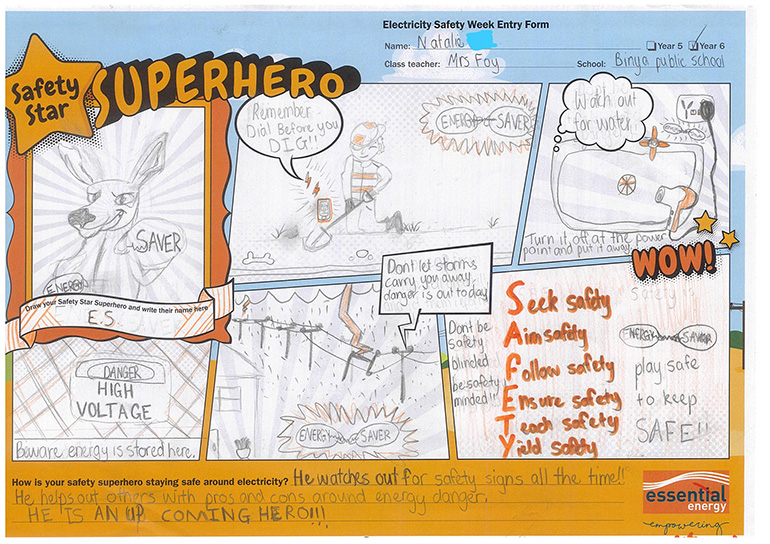 Electricity Safety Week Entry Form
Name: Natalie
Year 5 Year 6
Class teacher: Mrs Foy
School: Binya public school
Safety
Star
SUPERHERO
SAVER
ENERGY
Draw your Safety Star Superhero and write their name here
E.S
Remember
Dial Before you
DIG!!
ENERGY SAVER
Watch out
for water
Turn it off at the power
point and put it away.
WOW!
DANGER
HIGH
VOLTAGE
Beware energy is stored here.
Dont let storms
carry you away,
danger is out today
ENERGY SAVER
Dont be
safety
blinded
be safety
minded!!
Seek safety
Aim safety
Follow safety
Ensure safety
Teach safety
Yield safety
safety is
ENERGY SAVER
play safe
to keep
SAFE!!
How is your safety superhero staying safe around electricity? He watches out for safety signs all the time!!
He helps out others with pros and cons around energy danger.
HE IS AN UP COMING HERO!!!
essential
energy
empowering